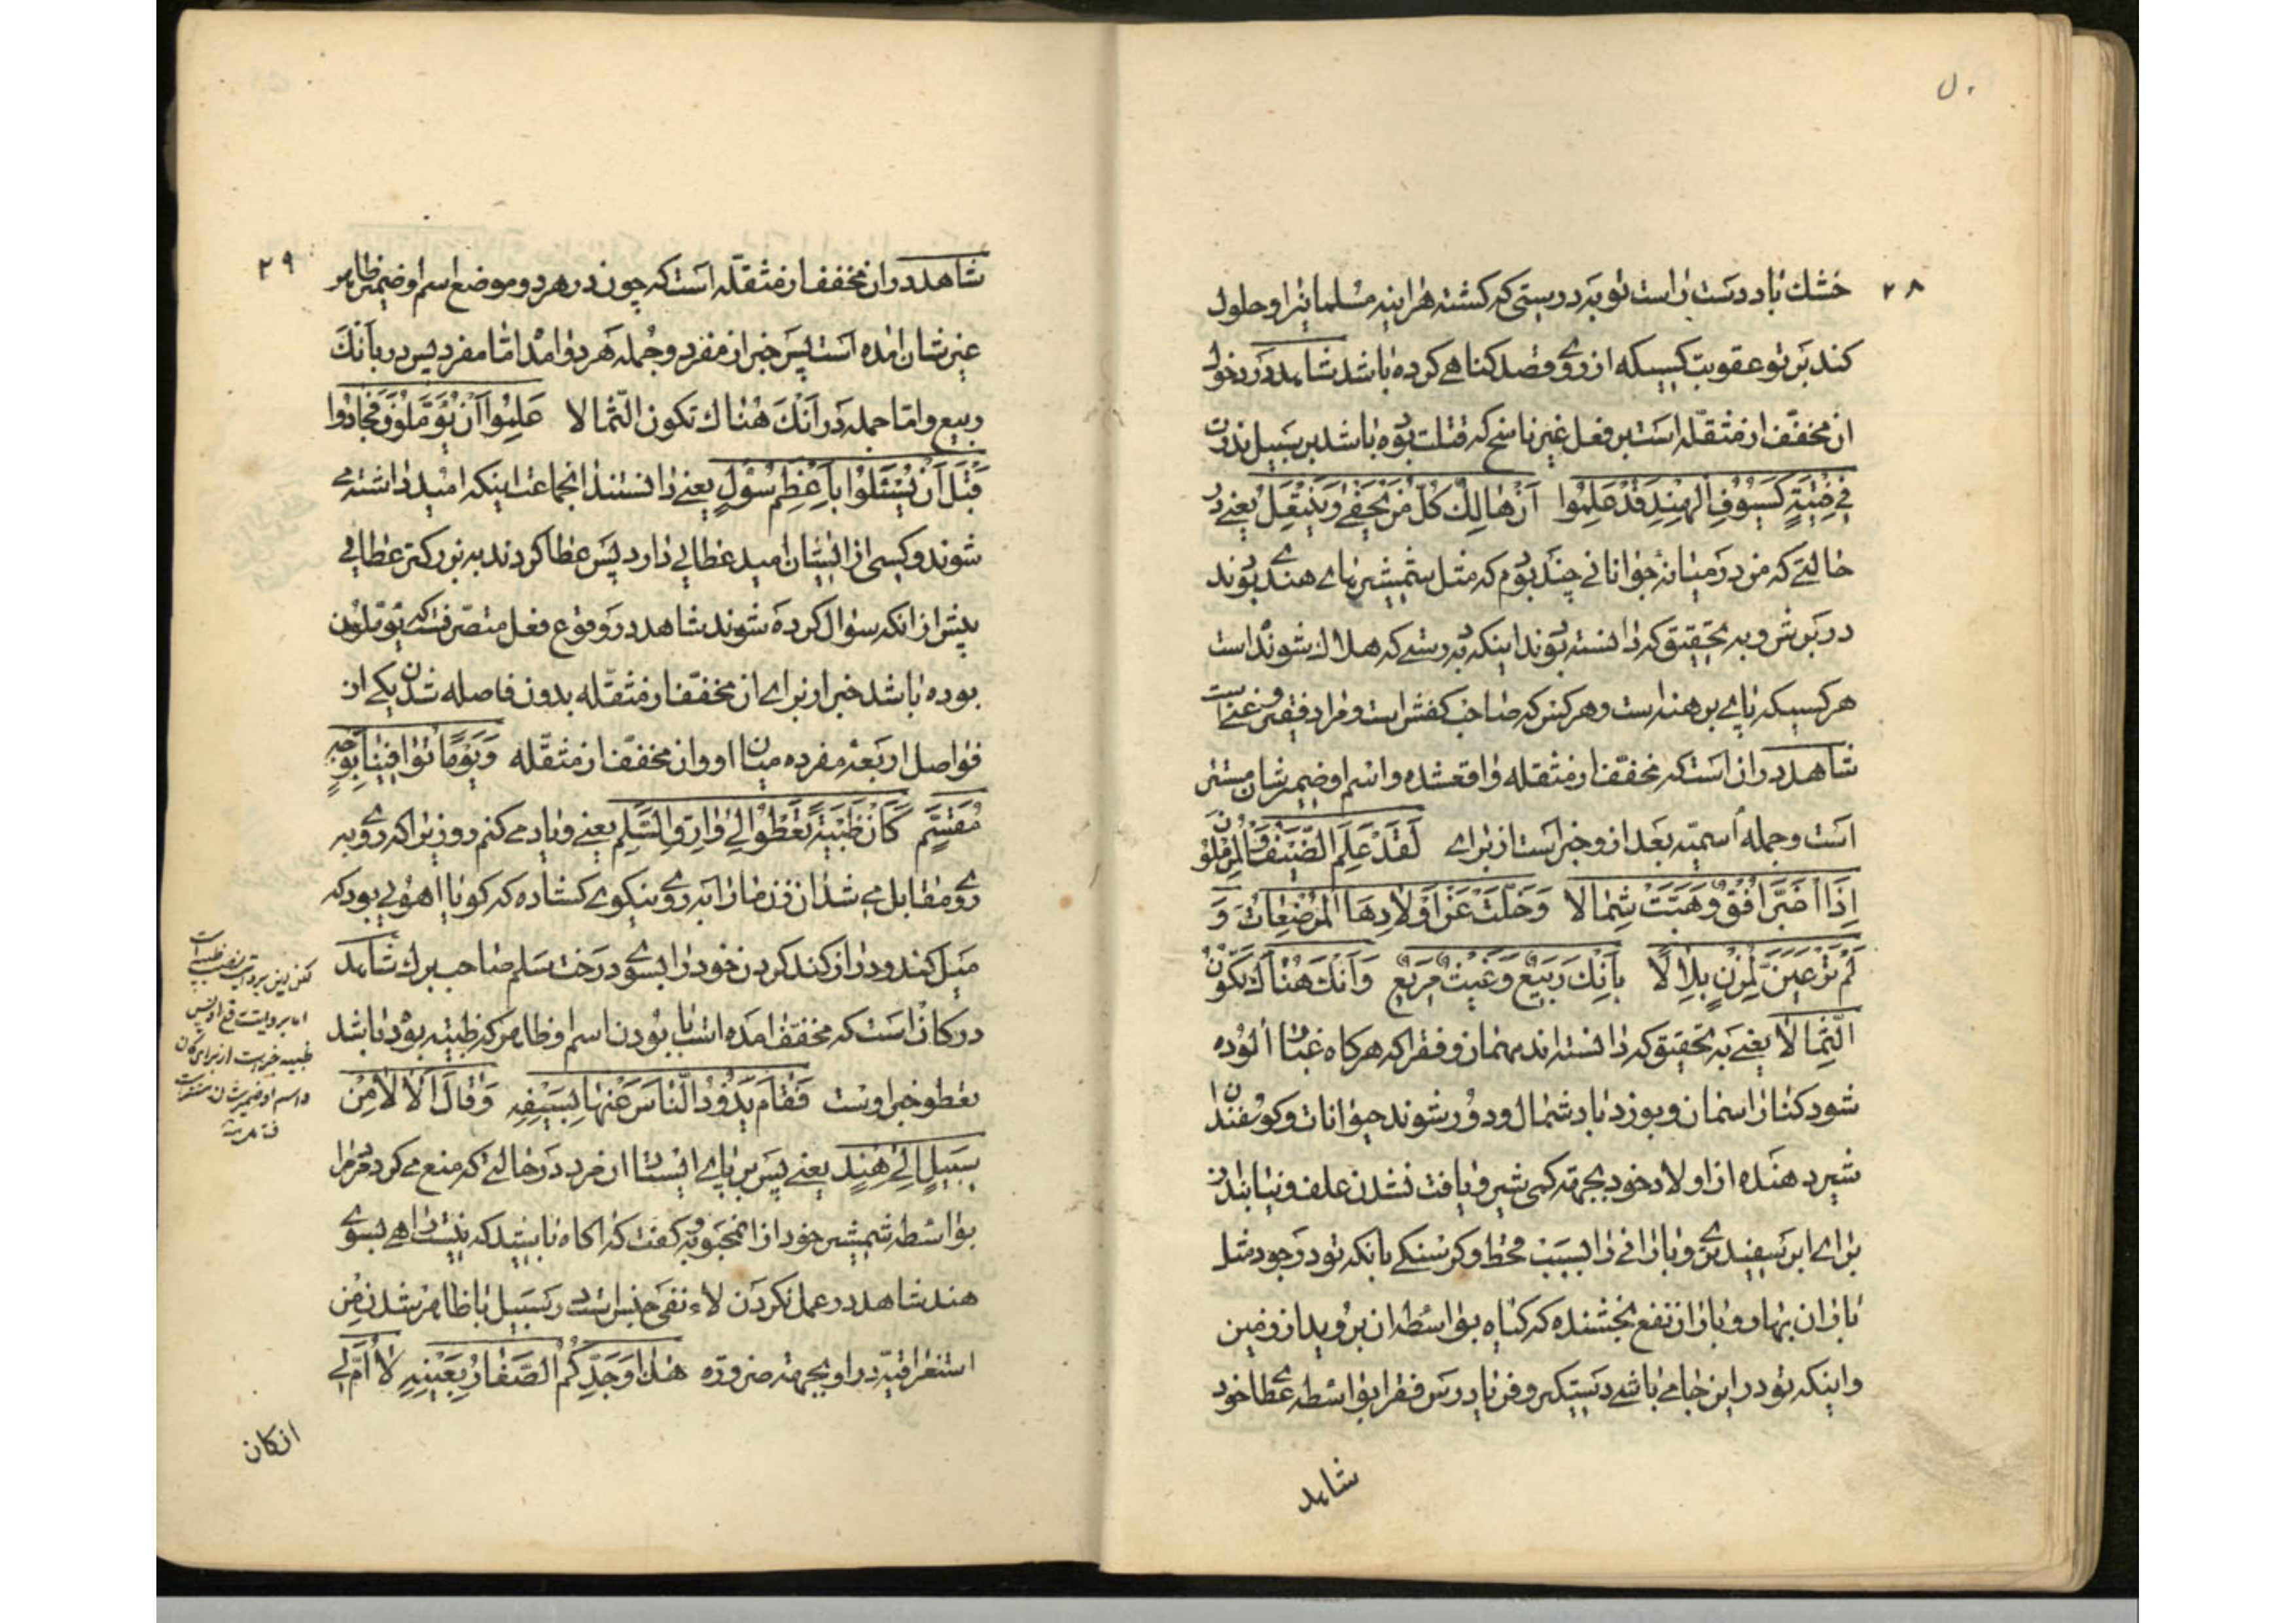 ۲۸
خشك باد دست راست تو به درستی که کشته هراینه مسلمانیرا و حلول
کند بر تو عقوبت کسیکه از روی قصد کناهی کرده باشد شاهد در دخول
ان مخفّف از مثقّله است بر فعل غیر ناسخ که قتلت بوده باشد بر سبیل ندرت
فِي فِتْيَةٍ كَسُيُوفِ الْهِنْدِ قَدْ عَلِمُوا اَنْ هَالِكٌ كُلُّ مَنْ يَحْفَىٰ وَيَنْتَعِلُ یعنی در
حالتی که من در میانه جوانانی چند بودم که مثل شمشیرهای هندی بودند
در برش و به تحقیق که دانسته بودند اینکه به درستی که هلاك شونده است
هر کسیکه پای برهنه است و هر کس که صاحب کفش است و مراد فقیر و غنی است
شاهد در ان است که مخفّف از مثقله واقعشده و اسم او ضمیر شان مستتر
است و جمله اسمیّه بعد از و خبر است از برای لَقَدْ عَلِمَ الضَّيْفُ وَالْمُرْمِلُونَ
اِذَا اغْبَرَّ اُفْقٌ وَهَبَّتْ شِمَالا وَخَلَتْ عَنْ اَوْلَادِهَا الْمُرْضِعَاتُ وَ
لَمْ تَرَ عَيْنٌ لِمُزْنٍ بِلَالًا بِاَنْكَ رَبِيعٌ وَغَيْثٌ مَرِيعٌ وَاَنْكَ هُنَاكَ تَكُونُ
الثِّمَالا یعنی به تحقیق که دانسته اند مهمان و فقرا که هرکاه غبار الوده
شود کنار اسمان و بوزد باد شمال و دور شوند حیوانات و کوسفندان
شیر دهنده از اولاد خود بجهة کمی شیر و یافت نشدن علف و نیابند
برای ابر سفیدی و بارانی را بسبب قحط و کرسنکی بانکه تو در جود مثل
باران بهار و باران نفع بخشنده که کیاه بواسطه ان بروید از زمین
و اینکه تو در این جا می باشی دستکیر و فریادرس فقرا بواسطه عطای خود
شاهد
۲۹
شاهد در ان مخفف از مثقّله است که چون در هر دو موضع اسم او ضمیر ظاهر
غیر شان امده است پس خبر از مفرد و جمله هر دو امد امّا مفرد پس در بأنك
ربیع و امّا جمله در أنك هناك تكون الثّمالا عَلِمُوا اَنْ يُؤَمَّلُونَ فَجَادُوا
قَبْلَ اَنْ يُسْئَلُوا بِاَعْظَمِ سُؤْلٍ یعنی دانستند انجماعت اینکه امید داشته می
شوند و کسی از ایشان امید عطائی دارد پس عطا کردند به بزرکتر عطائی
پیش از انکه سؤال کرده شوند شاهد در وقوع فعل متصرّفست که یؤمّلون
بوده باشد خبر از برای ان مخفّف از مثقّله بدون فاصله شدن یکی از
فواصل اربعه مفرده میان او و ان مخفّف از مثقّله وَيَوْمًا تُوَافِينَا بِوَجْهٍ
مُقَسَّمٍ كَاَنْ ظَبْيَةً تَعْطُوا اِلٰى وَارِقِ السَّلَمِ یعنی و یاد می کنم روزیرا که روی به
روی مقابل می شد ان زن ما را به روی نیکوی کشاده که کویا اهوئی بود که
میل کند و دراز کند کردن خود را بسوی درخت سلم صاحب برك شاهد
در کان است که مخفّف امده است با بودن اسم او ظاهر که ظبیة بوده باشد
تعطو خبر اوست فَقَامَ يَذُودُ النَّاسَ عَنْهَا بِسَيْفِهِ وَقَالَ اَلَا لَا مِنْ
سَبِيلٍ اِلٰى هِنْدٍ یعنی پس بر پای ایستاد ان مرد در حالتی که منع می کرد مردم را
بواسطه شمشیر خود از انمحبوبه و کفت که اکاه باشید که نیست راهی بسوی
هند شاهد در عمل نکردن لاء نفی جنس است در سبیل با ظاهر شدن من
استغراقیّه در او بجهة ضرورة هٰذَا وَجَدِّكُمُ الصَّغَارُ بِعَيْنِهِ لَا اُمَّ لِي
ظبیه خبرست از برای کان
و اسم او ضمیر شان مستتر است
ان کان